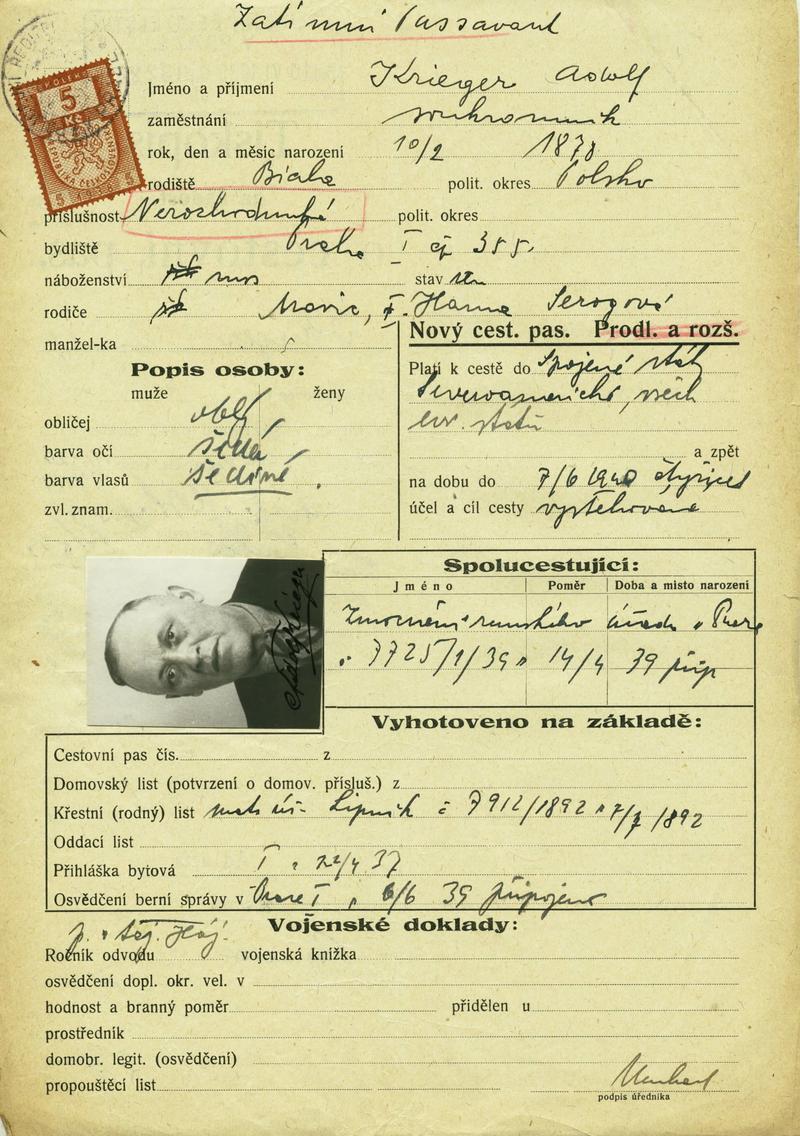 Zatimní Passavant
KOLEK
5
Kč
REPUBLIKA ČESKOSLOVENSKÁ
Jméno a příjmení Krieger Adolf
zaměstnání soukromník
rok, den a měsíc narození 10/2 1878
rodiště Biala polit. okres Polsko
příslušnost Nerozhodnutá polit. okres
bydliště Praha I čj 355.
náboženství mos stav
rodiče Moric, Hanna Serogová
manžel-ka
Nový cest. pas. Prodl. a rozš.
Popis osoby:
muže ženy
obličej oblý
barva očí šedá
barva vlasů šedivé
zvl. znam.
Platí k cestě do Spojené státy
Severoamerické, všech
evr. států
a zpět
na dobu do 7/6 1940
účel a cíl cesty vystěhování
Spolucestující:
Jméno Poměr Doba a misto narození
Zmocnění římského úřadu v Praze
č. 7725/1/39 14/4 39 přip
Vyhotoveno na základě:
Cestovní pas čís. z
Domovský list (potvrzení o domov. přísluš.) z
Křestní (rodný) list matr. úř. Lipník č 7912/1892 7/7 1892
Oddací list
Přihláška bytová I 22/4 37
Osvědčení berní správy v Praze I 6/6 39 připojeno
Vojenské doklady:
Ročník odvodu vojenská knížka
osvědčení dopl. okr. vel. v
hodnost a branný poměr přidělen u
prostředník
domobr. legit. (osvědčení)
propouštěcí list
podpis úředníka